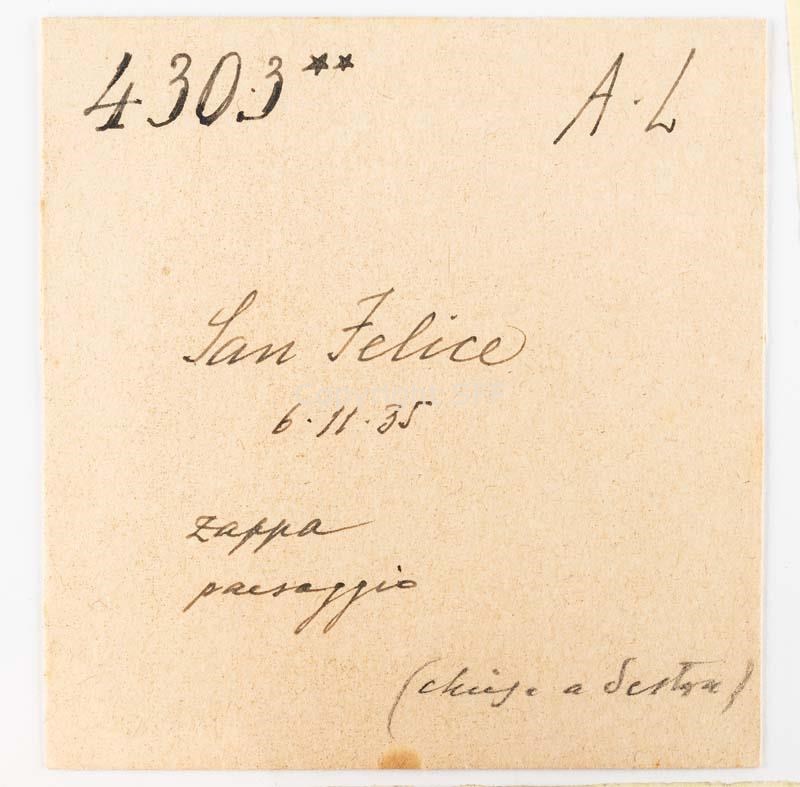 4303** A. L
San Felice
6.11.35
zappa
paesaggio
(chiesa a destra)